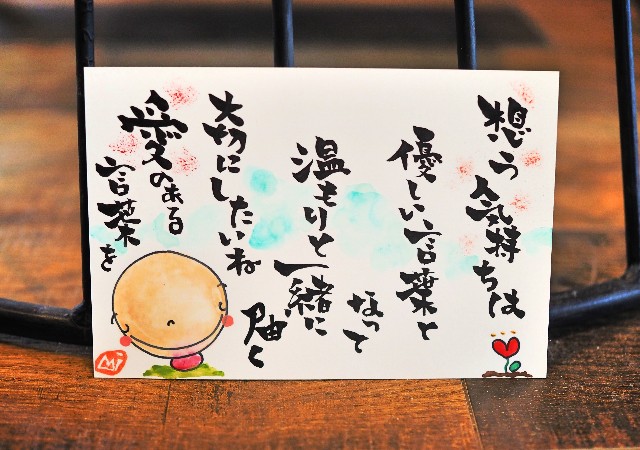 想う気持ちは
優しい言葉と
なって
温もりと一緒に
届く
大切にしたいね
愛のある
言葉を
Mi